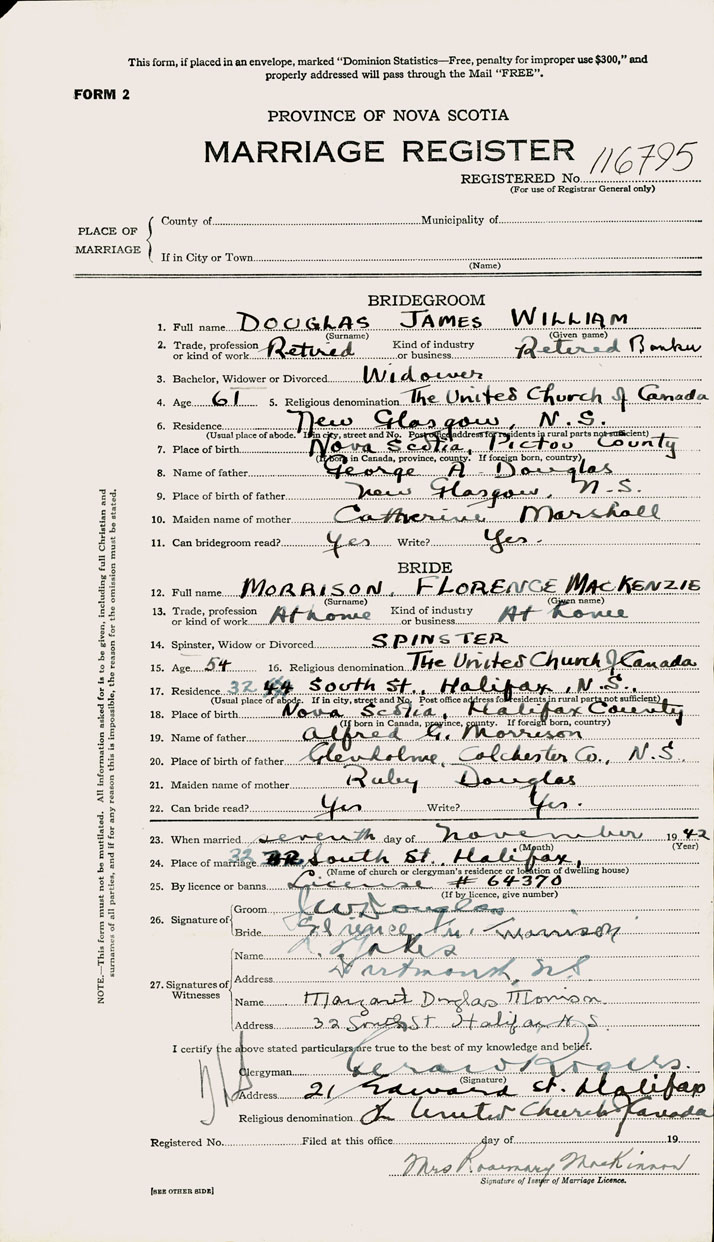 This form, if placed in an envelope, marked "Dominion Statistics—Free, penalty for improper use $300," and
properly addressed will pass through the Mail "FREE".
FORM 2
PROVINCE OF NOVA SCOTIA
MARRIAGE REGISTER
REGISTERED No. 116795
(For use of Registrar General only)
PLACE OF MARRIAGE
County of Municipality of
If in City or Town
(Name)
BRIDEGROOM
1. Full name DOUGLAS JAMES WILLIAM
(Surname) (Given name)
2. Trade, profession or kind of work Retired Kind of industry or business Retered Banker
3. Bachelor, Widower or Divorced Widower
4. Age 61 5. Religious denomination The United Church of Canada
6. Residence New Glasgow, N.S.
(Usual place of abode. If in city, street and No. Post office address for residents in rural parts not sufficient)
7. Place of birth Nova Scotia, Pictou County
(If born in Canada, province, county. If foreign born, country)
8. Name of father George A Douglas
9. Place of birth of father New Glasgow, N.S.
10. Maiden name of mother Catherine Marshall
11. Can bridegroom read? Yes Write? Yes.
BRIDE
12. Full name MORRISON, FLORENCE MACKENZIE
(Surname) (Given name)
13. Trade, profession or kind of work At home Kind of industry or business At home
14. Spinster, Widow or Divorced SPINSTER
15. Age 54 16. Religious denomination The United Church of Canada
17. Residence 32 South St., Halifax, N.S.
(Usual place of abode. If in city, street and No. Post office address for residents in rural parts not sufficient)
18. Place of birth Nova Scotia, Halifax County
(If born in Canada, province, county. If foreign born, country)
19. Name of father Alfred G. Morrison
20. Place of birth of father Glenholme, Colchester Co., N.S.
21. Maiden name of mother Ruby Douglas
22. Can bride read? Yes Write? Yes.
23. When married seventh day of November 1942
(Month) (Year)
24. Place of marriage 32 South St. Halifax,
(Name of church or clergyman's residence or location of dwelling house)
25. By licence or banns License # 64370
(If by licence, give number)
26. Signature of
Groom J W Douglas
Bride Florence M. Morrison
27. Signatures of Witnesses
Name
Address Dartmouth, NS
Name Margaret Douglas Morrison
Address 32 South St Halifax N.S.
I certify the above stated particulars are true to the best of my knowledge and belief.
Clergyman Gerald Rogers.
(Signature)
Address 21 Edward St. Halifax
Religious denomination United Church of Canada
Registered No. Filed at this office day of 19
Mrs Rosemary MacKinnon
Signature of Issuer of Marriage Licence.
[SEE OTHER SIDE]
NOTE.—This form must not be mutilated. All information asked for is to be given, including full Christian and
surnames of all parties, and if for any reason this is impossible, the reason for the omission must be stated.